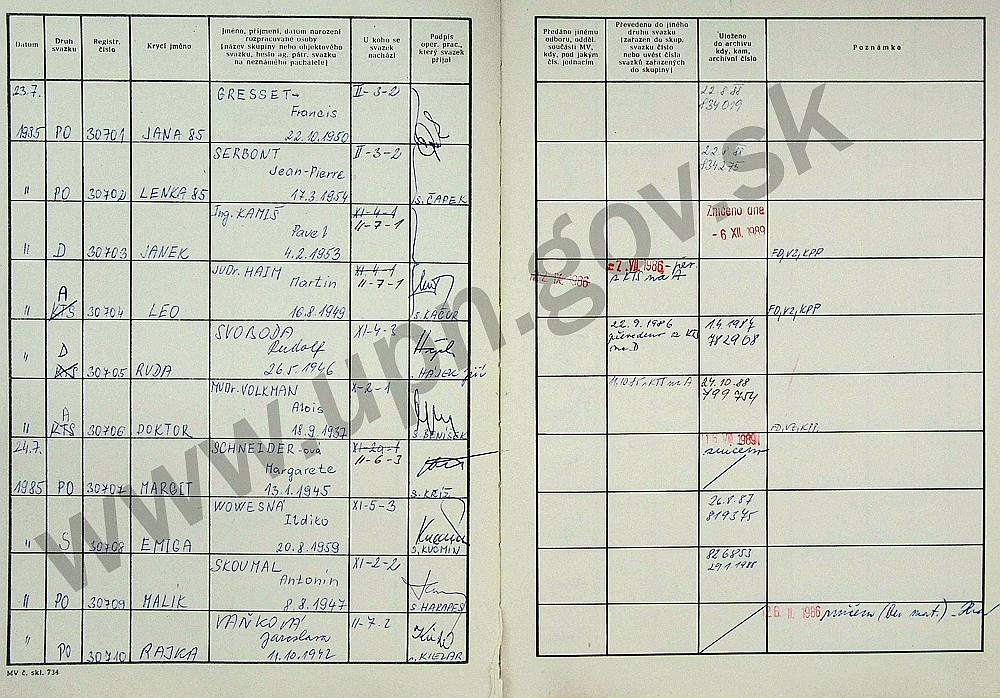 Datum
Druh svazku
Registr. číslo
Krycí jméno
Jméno, příjmení, datum narození
rozpracované osoby
(název skupiny nebo objektového
svazku, heslo ag. pátr. svazku
na neznámého pachatele)
U koho se
svazek
nachází
Podpis
oper. prac.,
který svazek
přijal
Předáno jinému
odboru, odděl.
součásti MV,
kdy, pod jakým
čís. jednacím
Převedeno do jiného
druhu svazku
(zařazen do skup.
svazku číslo
nebo uvést čísla
svazků zařazených
do skupiny)
Uloženo
do archivu
kdy, kam,
archivní číslo
Poznámka
23.7. GRESSET II-3-2 22.8.88
Francis 134019
1985 PO 30701 JANA 85 22.10.1950
SERBONT II-3-2 22.8.88
Jean-Pierre 134275
" PO 30702 LENKA 85 17.3.1954 S. ČAPEK
Ing. KAMIŠ XI-4-1 Zničeno dne
Pavel II-7-1 - 6 XII. 1989
" D 30703 JANEK 4.2.1953 FO, VZ, KPP
JUDr. HAIM XI-4-1 = 2. VII. 1986 - per.
A Martin II-7-1 z KTS na A
" KTS 30704 LEO 16.8.1949 S. KAČUR FO, VZ, KPP
SVOBODA XI-4-3 22.9.1986 1.4.1987
D Rudolf převedeno z KTS 782968
" KTS 30705 RUDA 26.5.1946 HÁJEK na D
MUDr. VOLKMAN X-2-1 11.10.85 KTS na A 24.10.88
A Alois 799754
" KTS 30706 DOKTOR 18.9.1937 S. BENÍSEK FO, VZ, KPP
24.7. SCHNEIDER-ová XI-2a-1 VIII 1989
Margarete II-6-3 zničen
1985 PO 30707 MARGIT 13.1.1945 S. KŘÍŽ
WOWESNÁ XI-5-3 26.8.87
Ildiko 819375
" S 30708 EMIGA 20.8.1959 S. KUCMIN
SKOUMAL XI-2-2 826853
Antonín 29.1.1988
" PO 30709 MALIK 8.8.1947
VAŇKOVÁ II-7-2 26. II. 1986 zničen
Jaroslava
" PO 30710 RAJKA 11.10.1942
MV č. skl. 734
www.upn.gov.sk